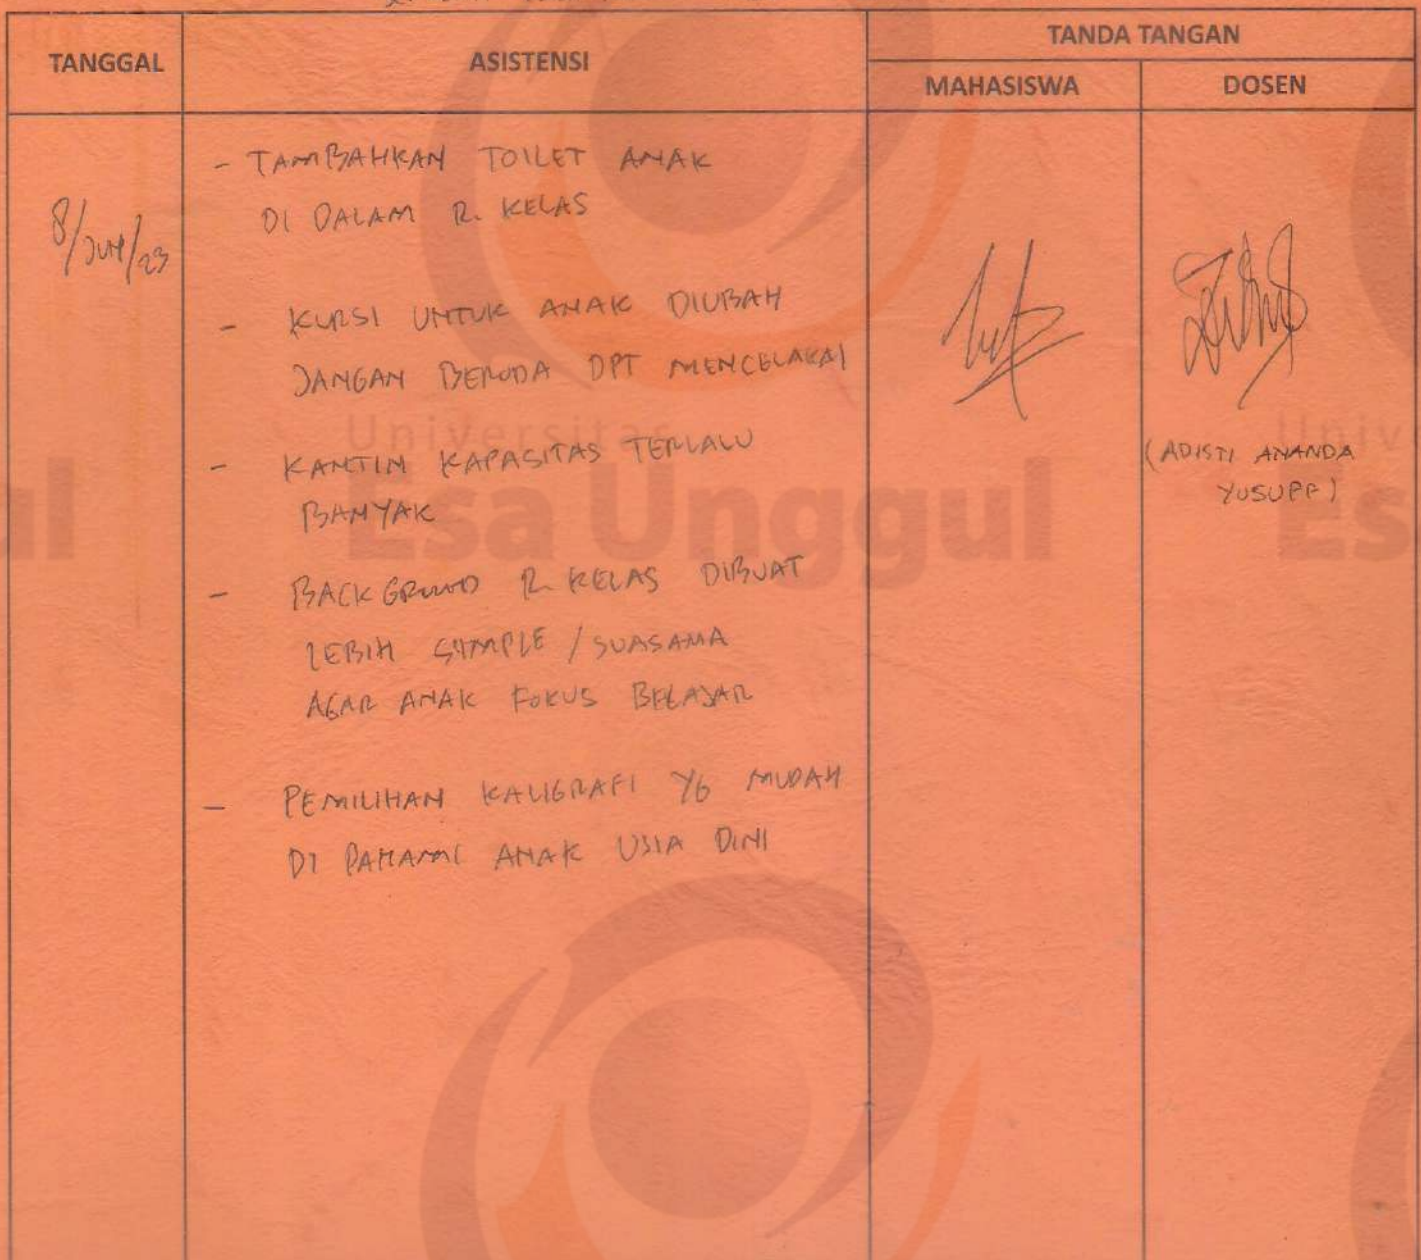 TANGGAL
ASISTENSI
TANDA TANGAN
MAHASISWA
DOSEN
8/JUNI/23
- TAMBAHKAN TOILET ANAK
DI DALAM R. KELAS
- KURSI UNTUK ANAK DIUBAH
JANGAN BERODA DPT MENCELAKAI
- KANTIN KAPASITAS TERLALU
BANYAK
- BACKGROUND R. KELAS DIBUAT
LEBIH SIMPLE / SUASANA
AGAR ANAK FOKUS BELAJAR
- PEMILIHAN KALIGRAFI YG MUDAH
DI PAHAMI ANAK USIA DINI
(ADISTI ANANDA
YUSUFF)
Universitas
Esa Unggul
ul
Univ
Es